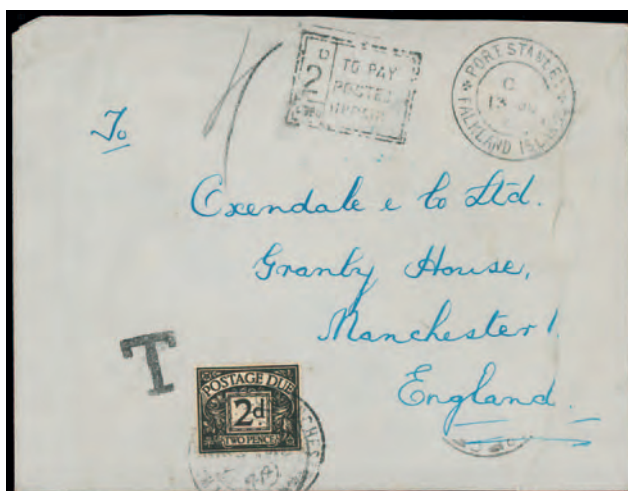 2D
TO PAY
POSTED
UNPAID
PORT STANLEY
C
13
FALKLAND ISLANDS
To
Oxendale & Co Ltd.
Granby House,
Manchester 1.
England.
T
POSTAGE DUE
2d.
TWO PENCE